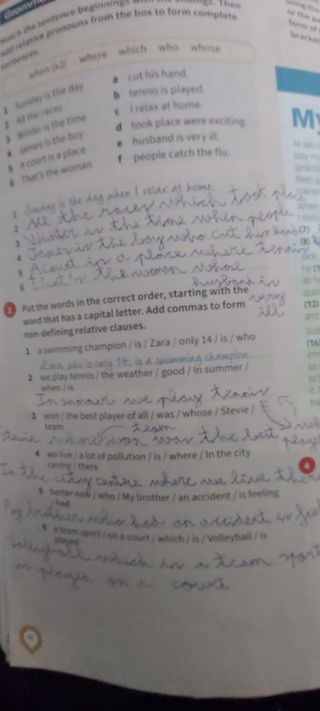 Match the sentence beginnings with the endings. Then
add relative pronouns from the box to form complete
sentences.
when (x2) where which who whose
1 Sunday is the day
2 All the races
3 Winter is the time
4 James is the boy
5 A court is a place
6 That's the woman
a cut his hand.
b tennis is played.
c I relax at home.
d took place were exciting.
e husband is very ill.
f people catch the flu.
1 Sunday is the day when I relax at home
2 All the races which took place
3 Winter is the time when people
4 James is the boy who cut his
5 A court is a place where tennis
6 That's the woman whose
husband is
very
ill
2 Put the words in the correct order, starting with the
word that has a capital letter. Add commas to form
non-defining relative clauses.
1 a swimming champion / is / Zara / only 14 / is / who
Zara who is only 14, is a swimming champion
2 we play tennis / the weather / good / In summer /
when / is
In summer we play tennis
3 won / the best player of all / was / whose / Stevie /
team
team
won was the best player
4 we live / a lot of pollution / is / where / In the city
centre / there
In the city centre where we live there
5 better now / who / My brother / an accident / is feeling
/ had
My brother who had an accident is
6 a team sport / on a court / which / is / Volleyball / is
played
Volleyball which is a team sport
is played on a court
My
4